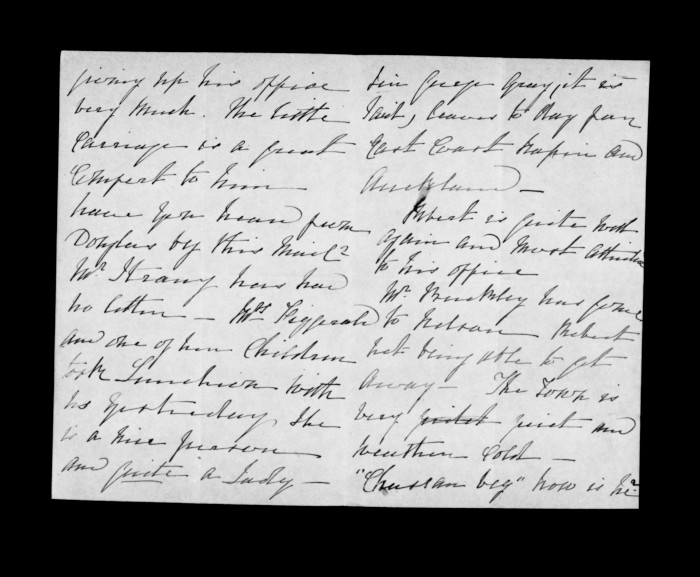 giving up his office
very much. The little
Carriage is a great
Comfort to him —
have you heard from
Douglas by this Mail?
Mr Strang has had
no letter — Mrs Fitzgerald
and one of her Children
took Luncheon with
us yesterday, She
is a nice person
and quite a Lady —
Sir George Gray, it is
said, leaves to day for
East Coast Napier and
Auckland —
Robert is quite well
again and most attentive
to his office
Mr Bunkley has gone
to Nelson Robert
not being able to get
away — The Town is
very quiet and
weather Cold —
beg" how is he?